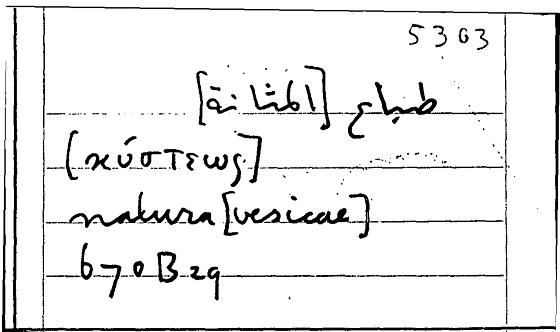 5303
طباع [المثانة]
[κύστεως]
natura [vesicae]
670B29